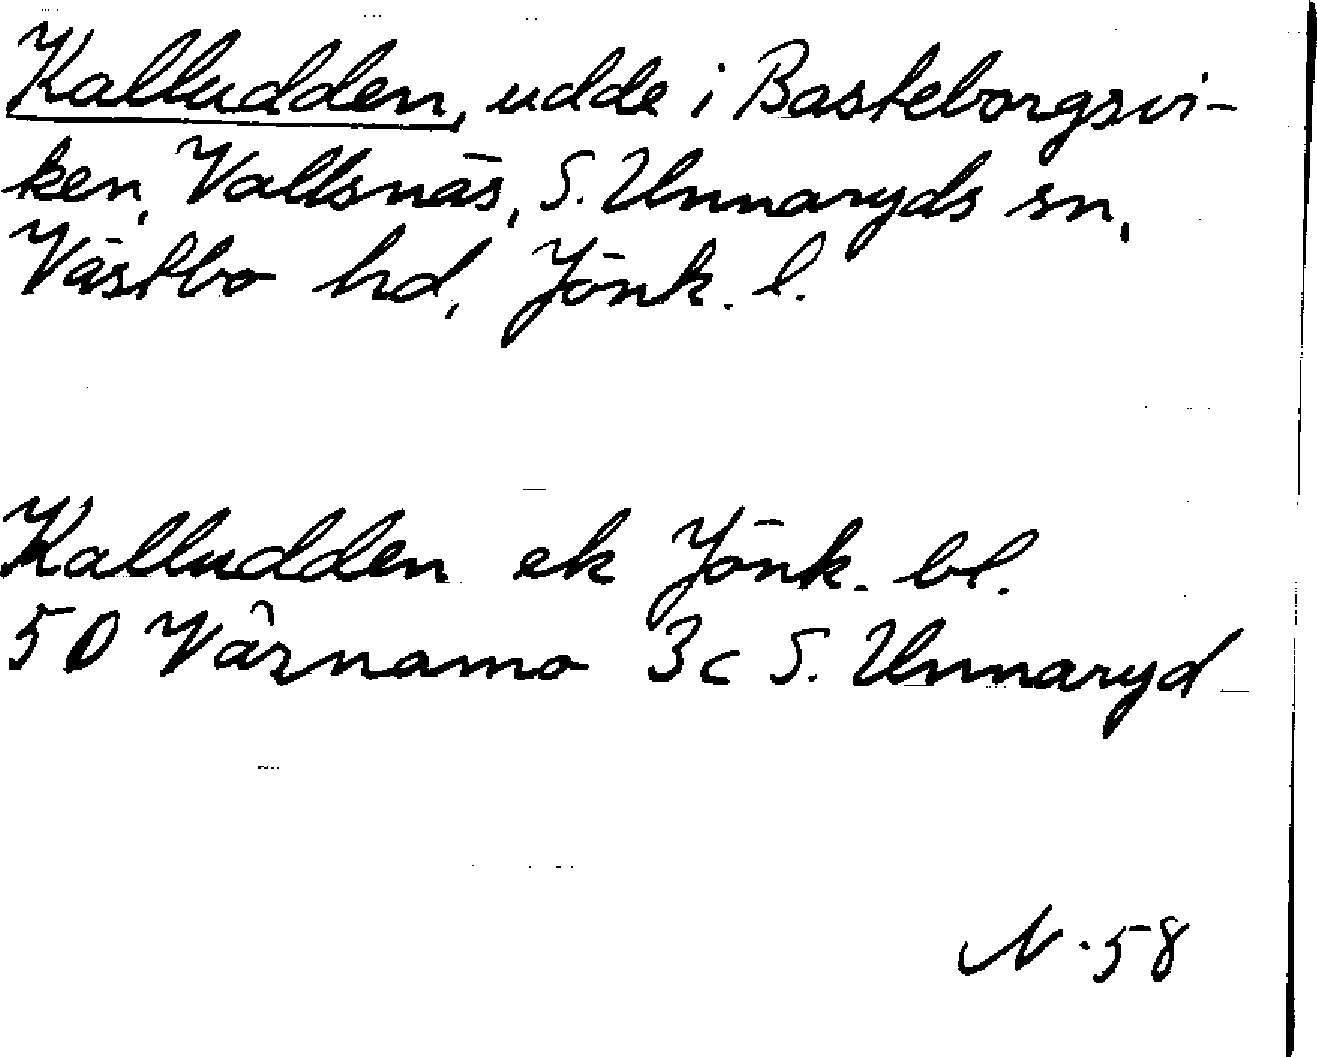 Kalludden, udde i Basteborgsvi-
ken, Vallsnäs, S. Unnaryds sn,
Västbo hd, Jönk. l.
Kalludden ek Jönk. bl.
5D Värnamo 3c S. Unnaryd
N. 58